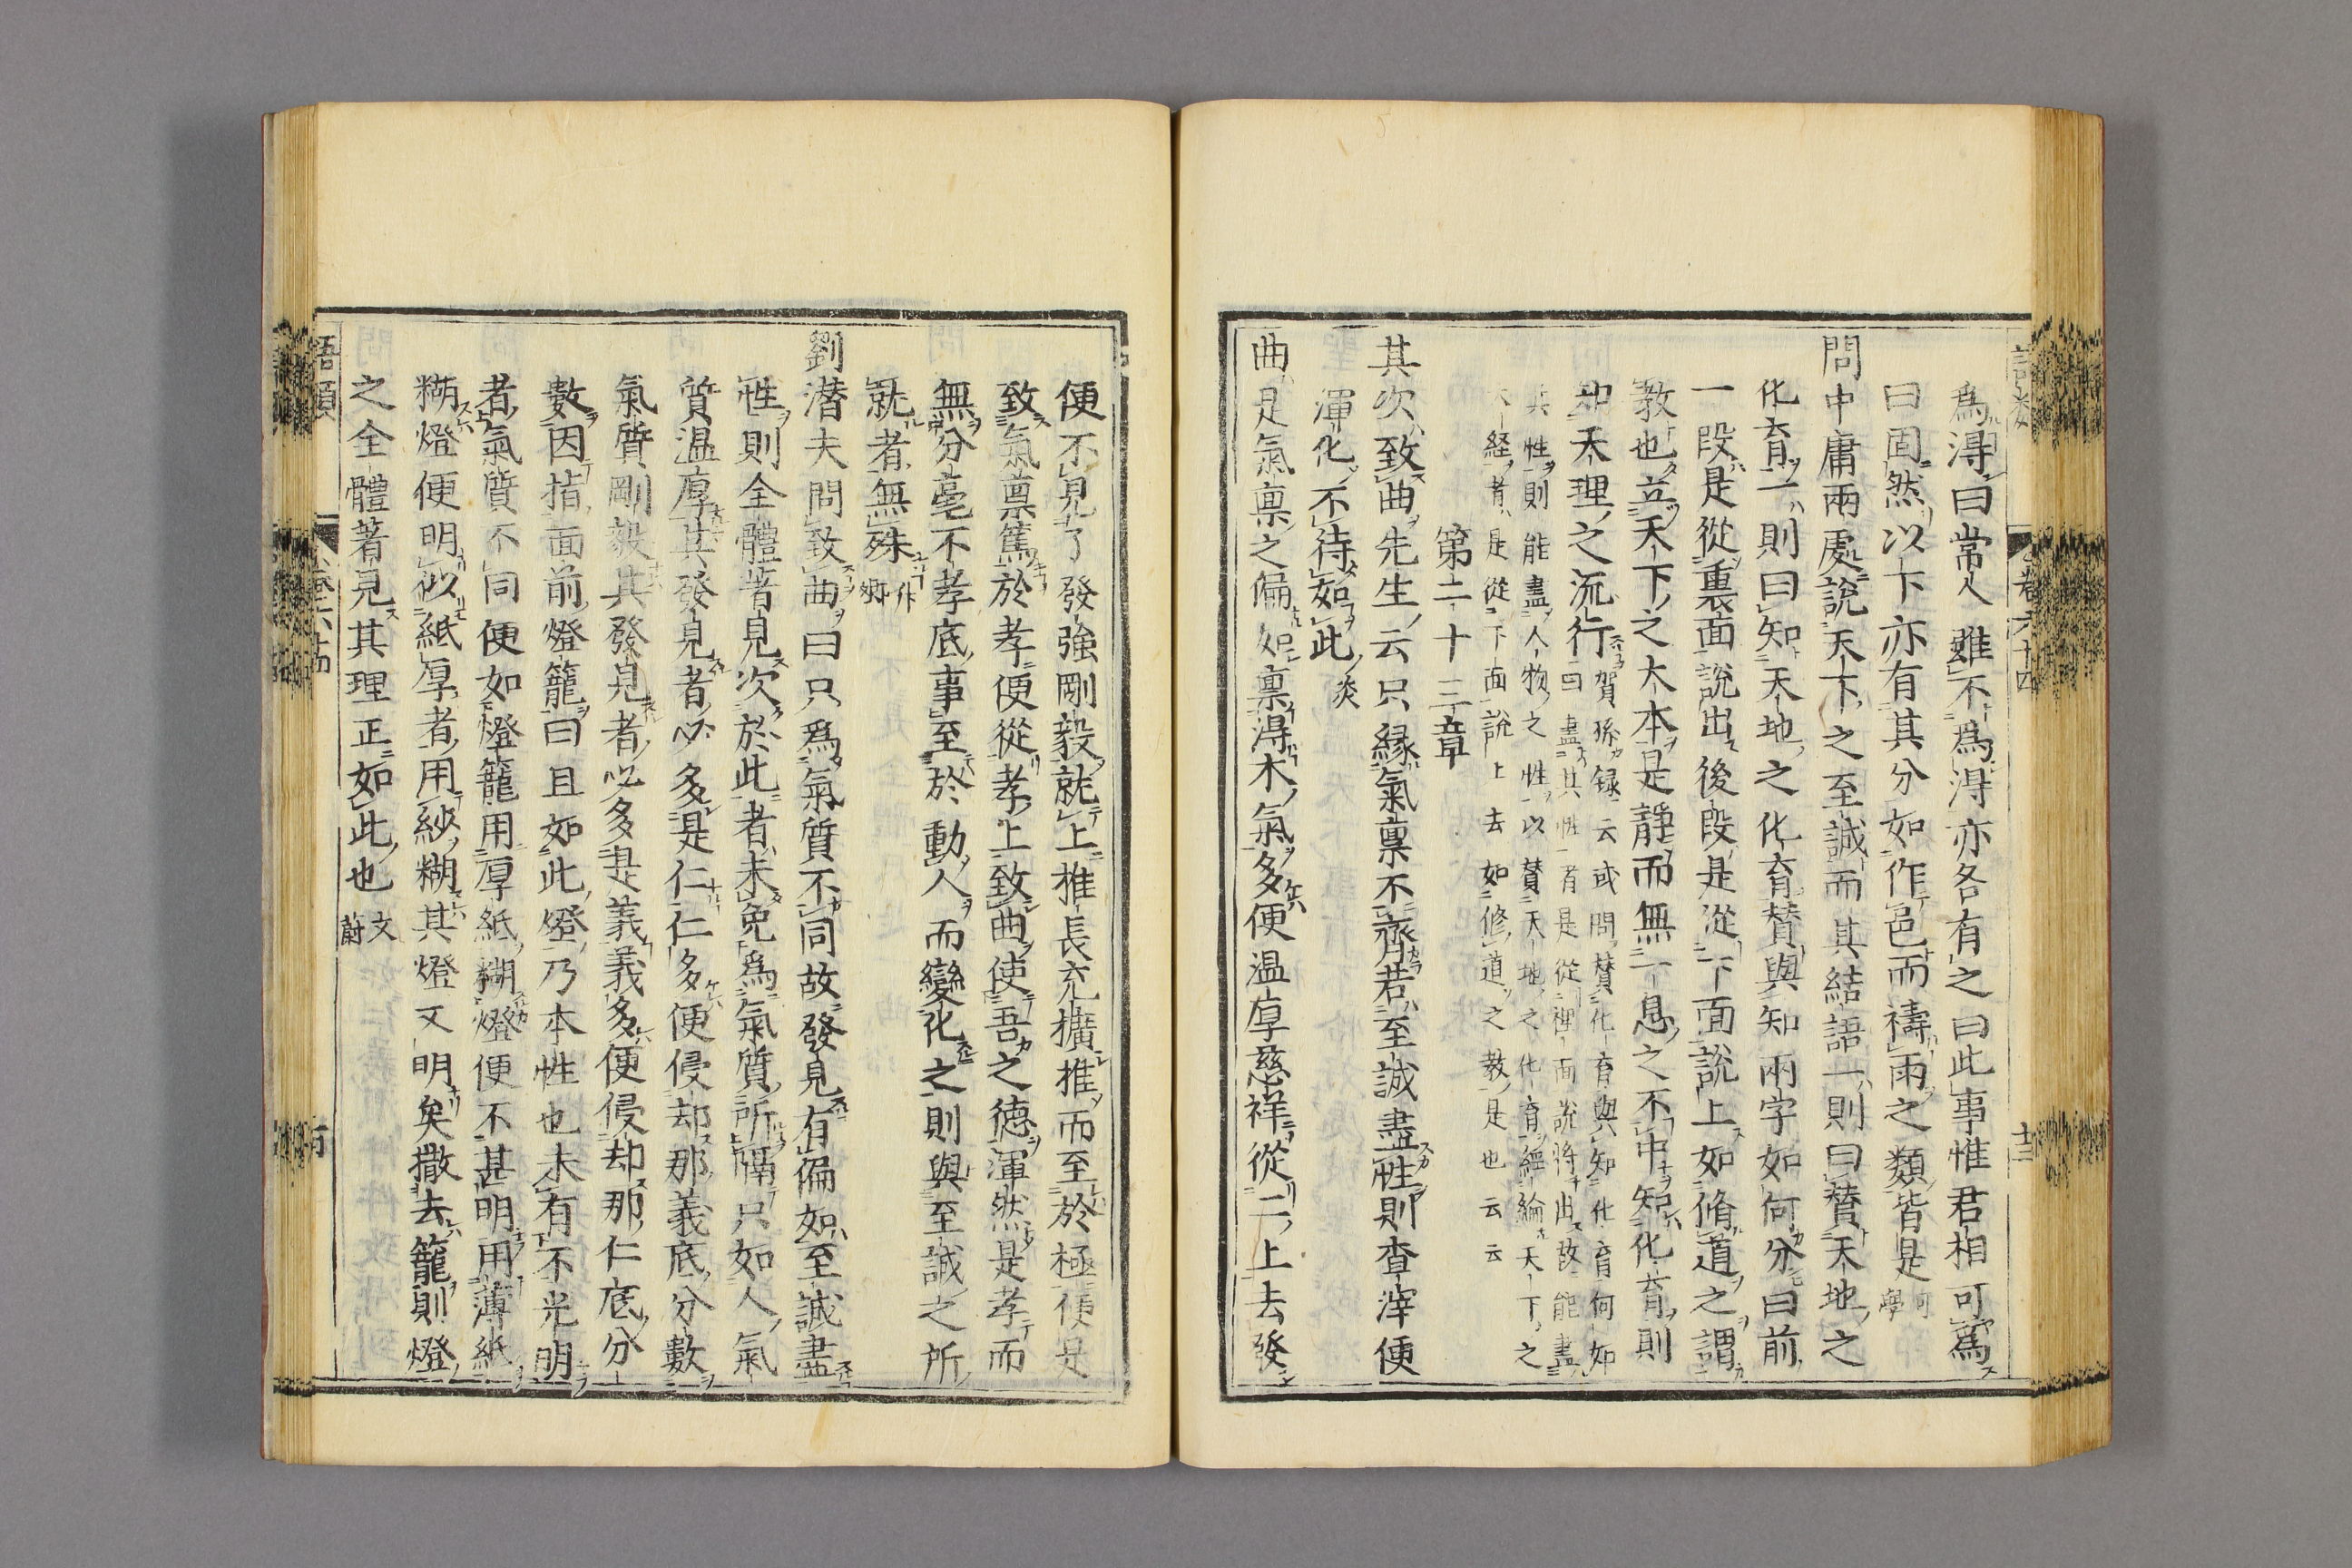 爲得曰常人雖不爲得亦各有之曰此事惟君相可爲
曰固然以下亦有其分如作邑而禱雨之類皆是學
問中庸兩處說天下之至誠而其結語一則曰贊天地之
化育一則曰知天地之化育贊與知兩字如何分曰前
一段是從裏面說出後段是從下面說上如脩道之謂
敎也立天下之大本是靜而無一息之不中知化育則
知天理之流行
賀孫録云或問贊化育與知化育何如
曰盡其性者是從裡面說將出故能盡
其性則能盡人物之性以贊天地之化育經綸天下之
大經者是從下面說上去如修道之教是也云云
第二十三章
其次致曲先生云只緣氣稟不齊若至誠盡性則查滓便
渾化不待如此炎
曲是氣稟之偏如稟得木氣多便温厚慈祥從仁上去發
便不見了發強剛毅就上推長充擴推而至於極便是
致氣稟篤於孝便從孝上致曲使吾之德渾然是孝而
無分毫不孝底事至於動人而變化之則與至誠之所
就者無殊
劉潛夫問致曲曰只爲氣質不同故發見有偏如至誠盡
性則全體著見次於此者未免爲氣質所隔只如人氣
質温厚其發見者必多是仁仁多便侵却那義底分數
氣質剛毅其發見者必多是義義多便侵却那仁底分
數因指面前燈籠曰且如此燈乃本性也未有不光明
者氣質不同便如燈籠用厚紙糊燈便不甚明用薄紙
糊燈便明似紙厚者用紗糊其燈又明矣撒去籠則燈
之全體著見其理正如此也文蔚